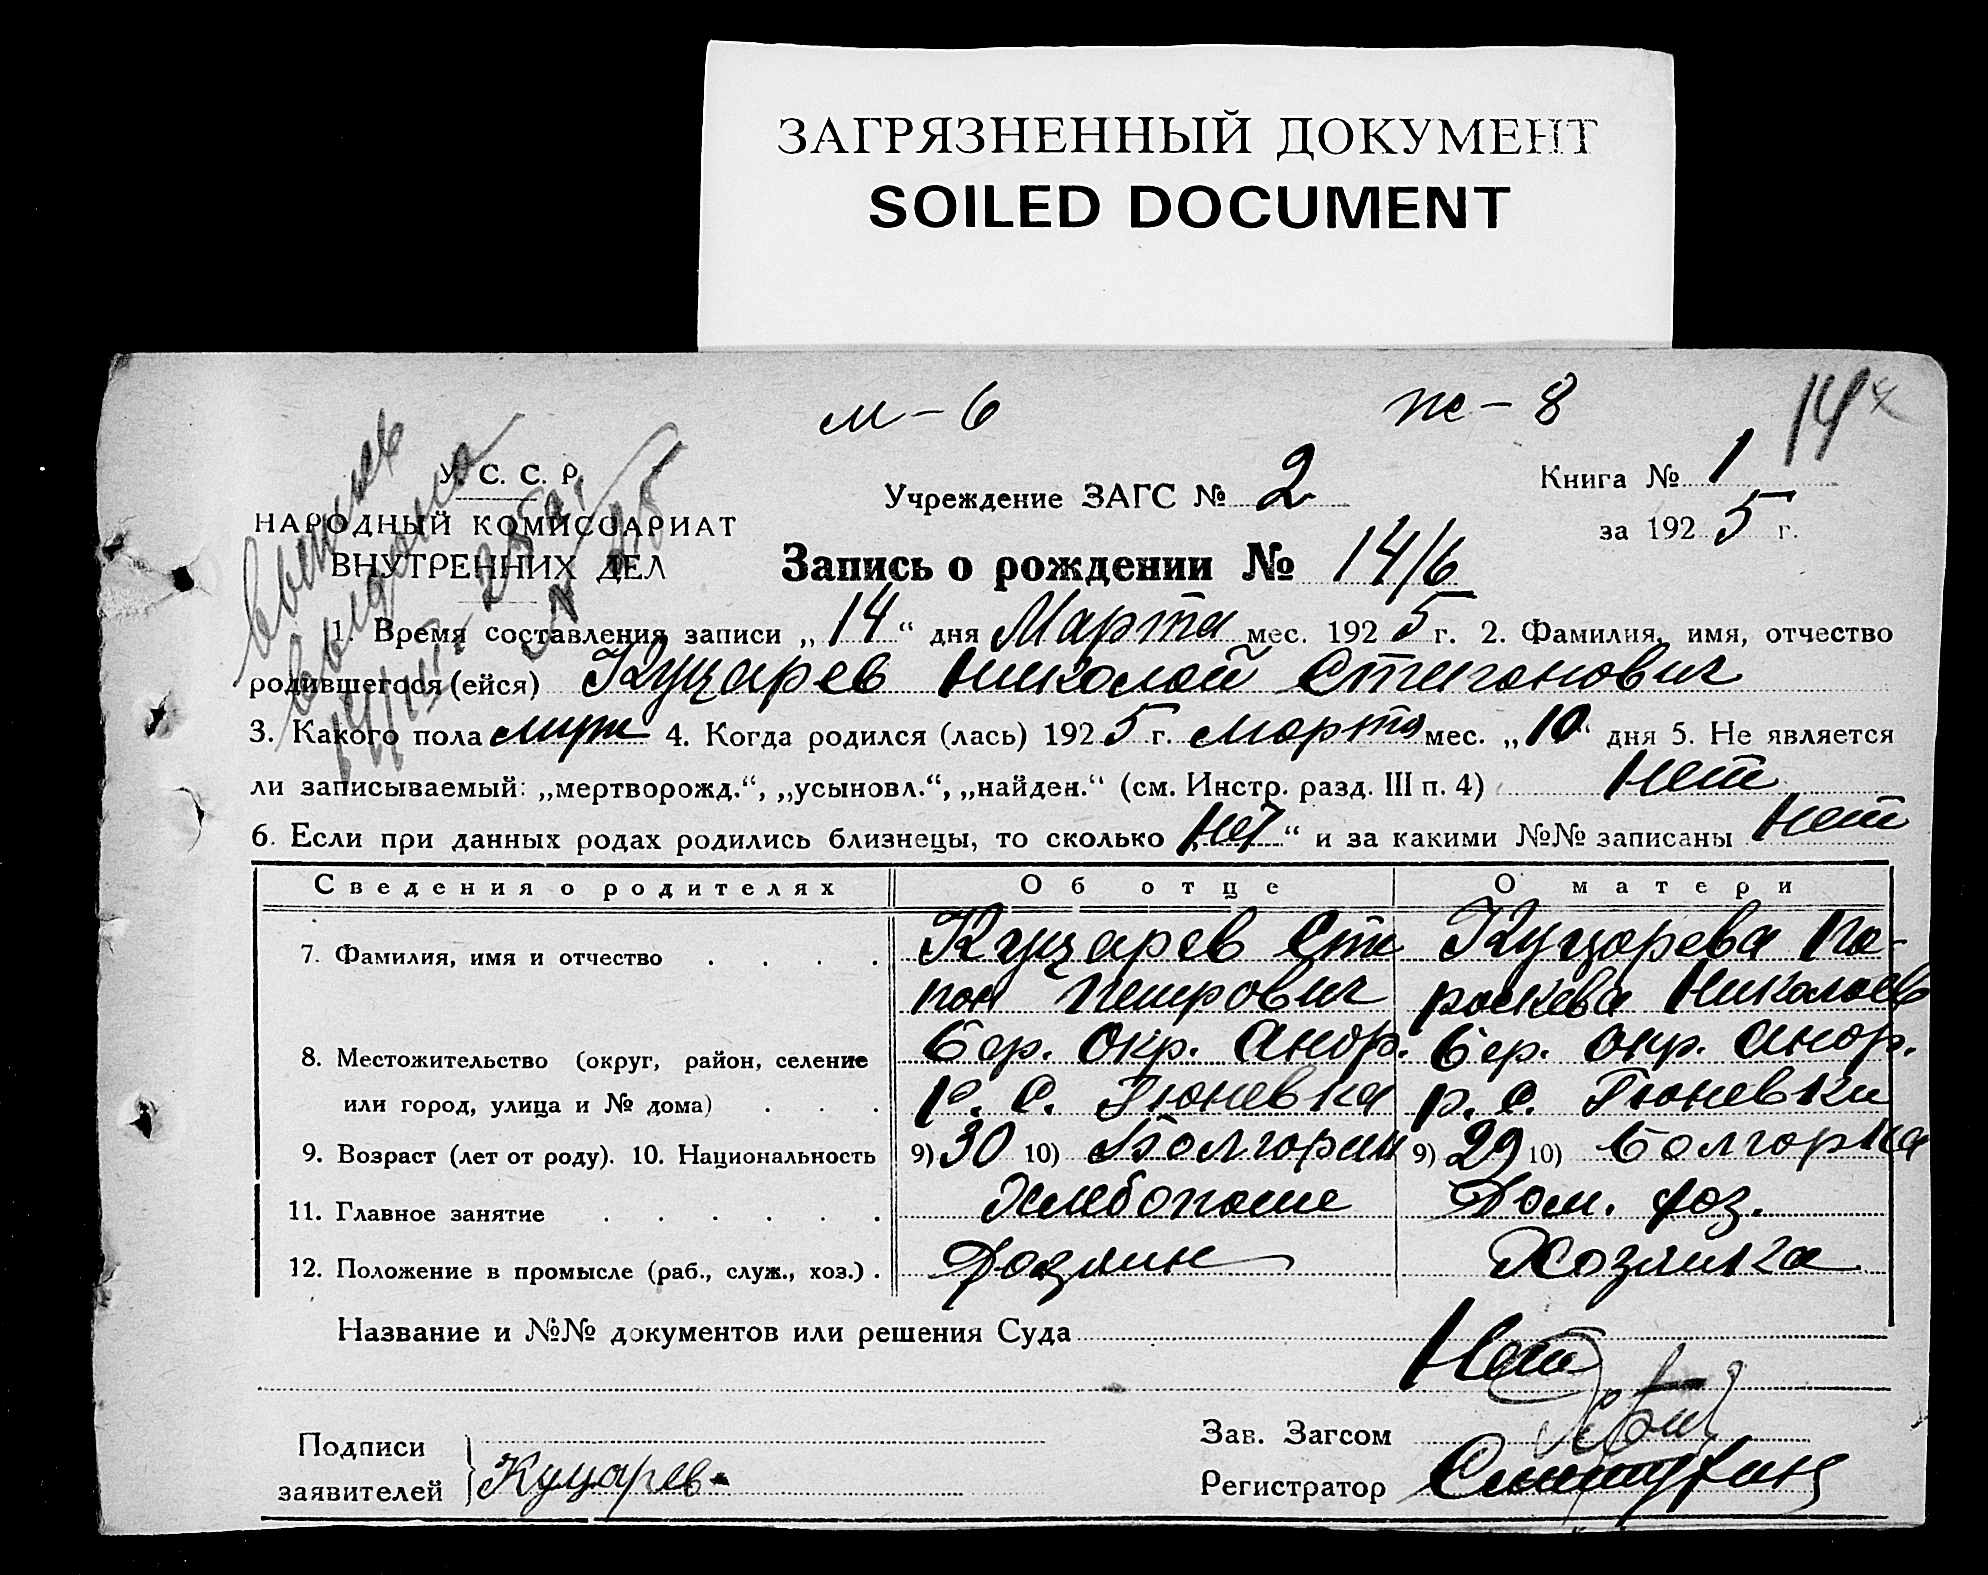 ЗАГРЯЗНЕННЫЙ ДОКУМЕНТ
SOILED DOCUMENT
м – 6 ж – 8 14
У. С. С. Р.
НАРОДНЫЙ КОМИССАРИАТ
ВНУТРЕННИХ ДЕЛ
Выпись
выдана
Учреждение ЗАГС № 2
Книга № 1
за 1925 г.
Запись о рождении № 14/6
1. Время составления записи „14“ дня Марта мес. 1925 г. 2. Фамилия, имя, отчество
родившегося (ейся) Куцарев Николай Степанович
3. Какого пола муж 4. Когда родился (лась) 1925 г. марта мес. „10“ дня 5. Не является
ли записываемый: „мертворожд.“, „усыновл.“, „найден.“ (см. Инстр. разд. III п. 4) Нет
6. Если при данных родах родились близнецы, то сколько „Нет“ и за какими №№ записаны Нет
Сведения о родителях Об отце О матери
7. Фамилия, имя и отчество . . . . Куцарев Сте Куцарева Па-
пан Петрович раскева Николаев
8. Местожительство (округ, район, селение Бер. Окр. Андр. Бер. Окр. Андр.
или город, улица и № дома) . . . р. с. Гюневка р. с. Гюневки
9. Возраст (лет от роду). 10. Национальность 9) 30 10) Болгорин 9) 29 10) Болгорка
11. Главное занятие . . . . . . Хлебопаше Дом. хоз.
12. Положение в промысле (раб., служ., хоз.) . Хозяин Хозяйка
Название и №№ документов или решения Суда Нет
Подписи
заявителей Куцарев
Зав. Загсом
Регистратор